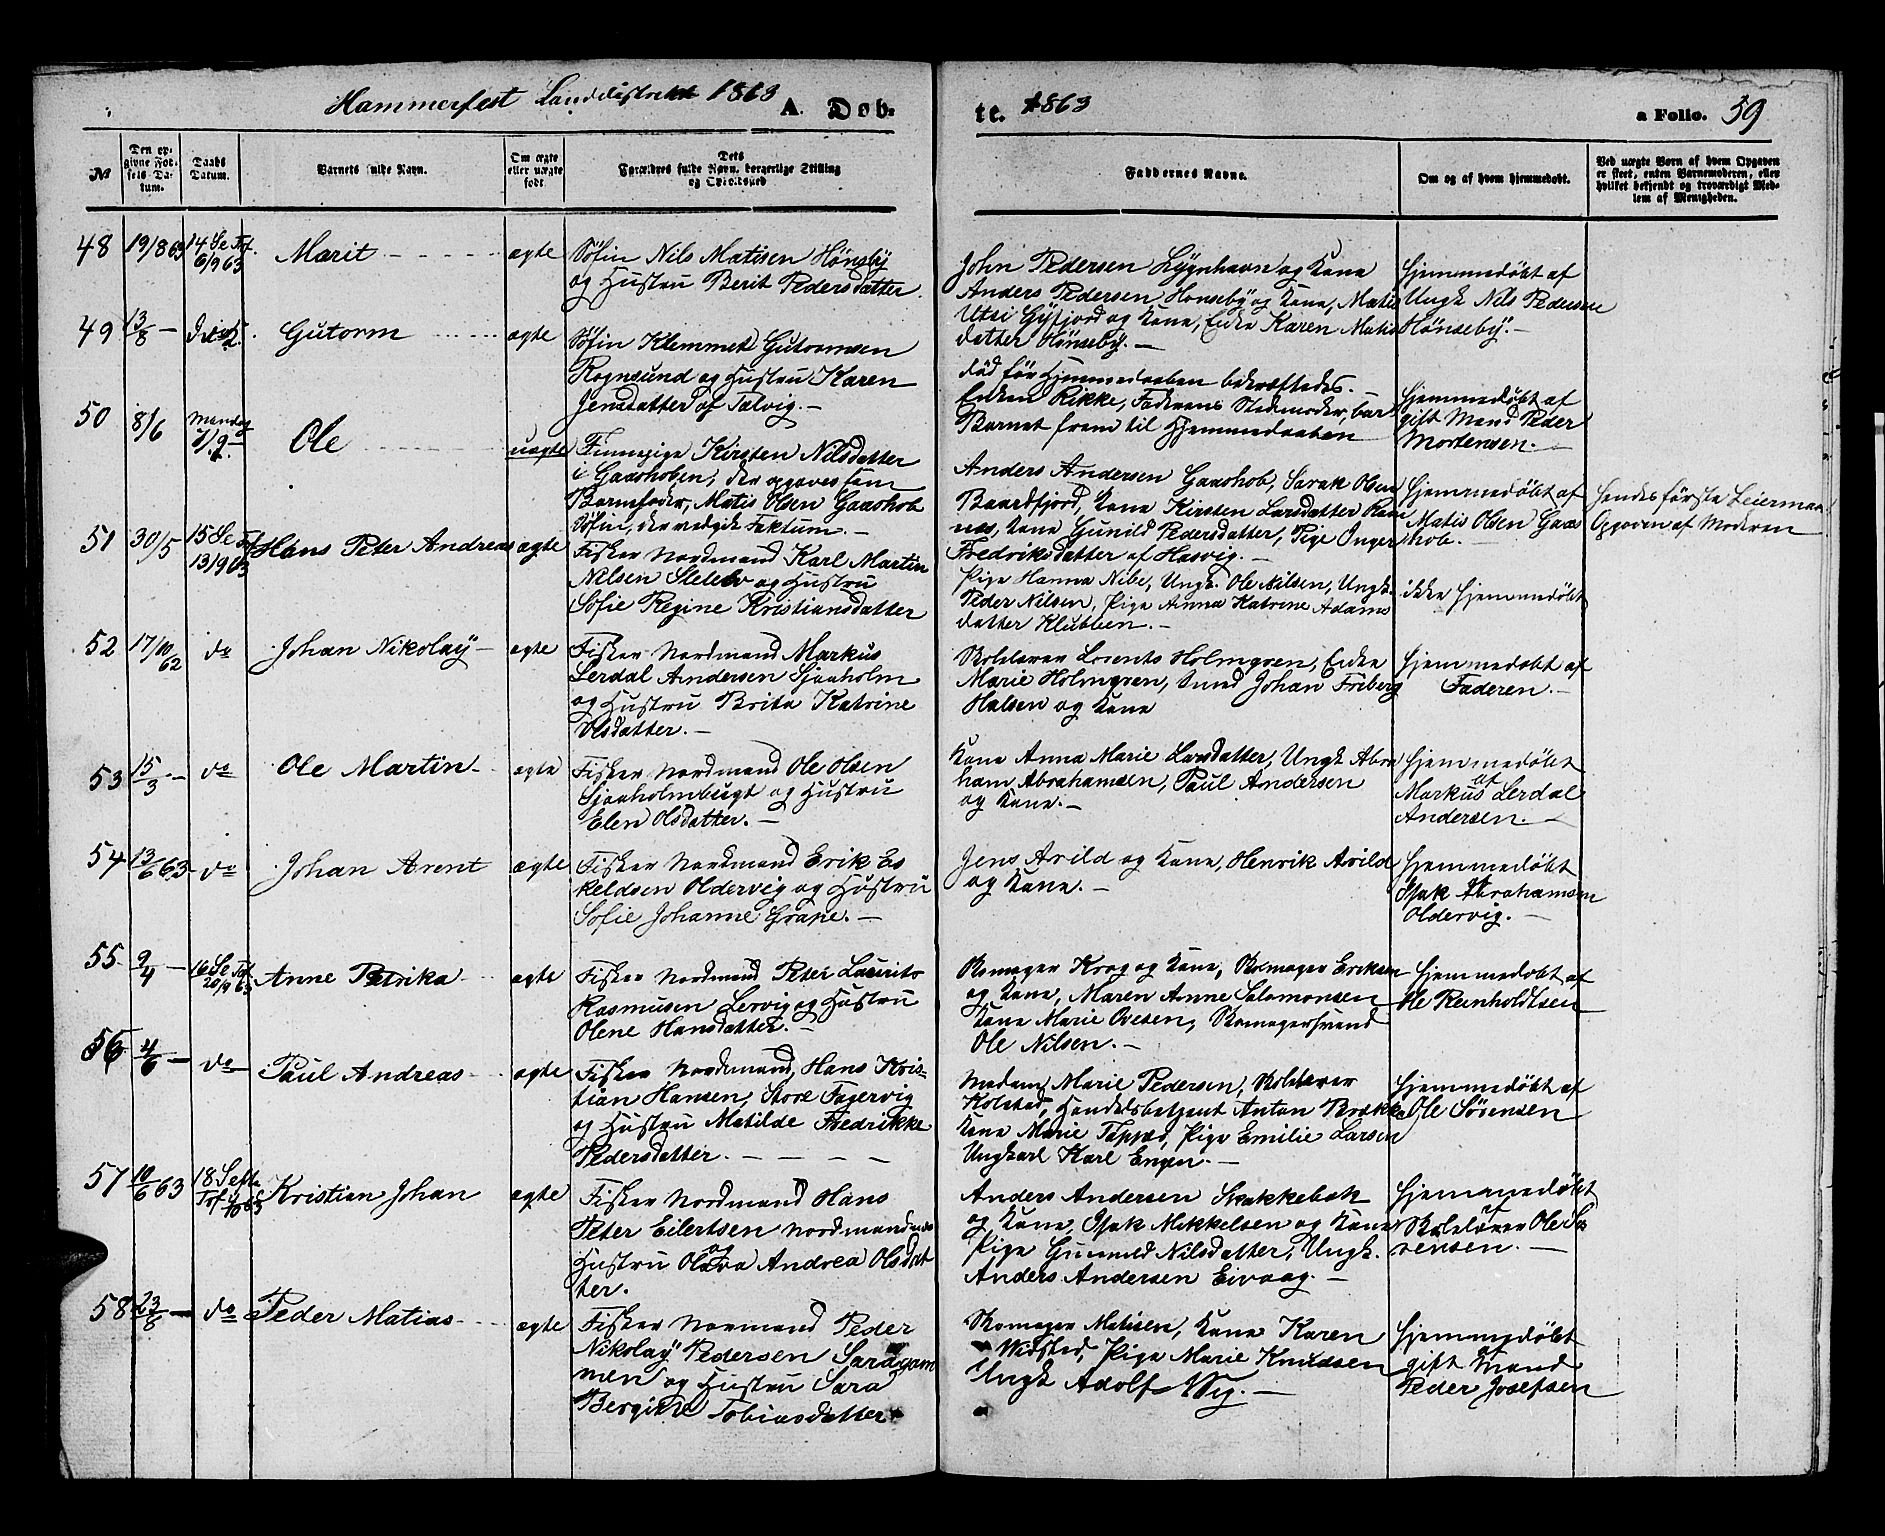 Hammerfest Landdistrikt 1863 A. Døb-
te. 1863 a Folio. 59
No
Den op-
givne Fød-
sels Da-
tum.
Daabs
Datum.
Barnets fulde Navn.
Om ægte
eller uægte
født.
Dets
Forældres fulde Navn, borgerlige Stilling
og Opholdssted
Faddernes Navne.
Om og af hvem hjemmedøbt.
Ved uægte Børn af hvem Opgaven
er skeet, enten Barnemoderen, eller
hvilket bekjendt og troværdigt Med-
lem af Menigheden.
48 19/8 63 14 Se Tref.
6/9 63 Marit ægte
Søfin Nils Matisen Hønsby
og Hustru Berit Pedersdatter.
John Pedersen Lygnhavn og Kone
Anders Pedersen Hønseby og Kone, Matis
Utsi Gyfjord og Kone, Enke Karen Matis
datter Hønseby.
Hjemmedøbt af
Ungk Nils Pedersen
Hønseby.
49 13/8 Gutorm ægte
Søfin Klemmet Gutormsen
Rognsund og Hustru Karen
Jensdatter af Talvig.
død før Hjemmedaaben bekræftedes.
Enken Rikke, Faderens Stedmoder, bar
Barnet frem til Hjemmedaaben
Hjemmedøbt af
gift Mand Peder
Mortensen.
50 8/6 Mandag
7/9 Ole uægte
Finnepige Kirsten Nilsdatter
i Gaashoben, der opgaves som
Barnefader, Matis Olsen Gaashob
Søfin, der vedgik Faktum.
Anders Andersen Gaashob, Sarak Olsen
Baardfjord, Kone Kirsten Larsdatter Ram
nes, Kone Gunild Pedersdatter, Pige Inger
Fredriksdatter af Hasvig.
Hjemmedøbt af
Matis Olsen Gaas
hob.
Hendes første Leiermaal
Opgaven af Moderen
51 30/5 15 Se Tref
13/9 63 Hans Peter Andreas ægte
Fisker Nordmand Karl Martin
Nilsen Slelev og Hustru
Sofie Regine Kristiansdatter
Pige Hanna Nibe, Ungk. Ole Nilsen, Ungk.
Peder Nilsen, Pige Anna Katrine Adams
datter Klubben.
ikke hjemmedøbt
52 17/10 62 do Johan Nikolay ægte
Fisker Nordmand Markus
Lerdal Andersen Sjaaholm
og Hustru Brita Katrine
Olsdatter.
Skolelærer Lorents Holmgren, Enke
Marie Holmgren, Smed Johan Friberg
Halsen og Kone
Hjemmedøbt af
Faderen.
53 15/3 do Ole Martin ægte
Fisker Nordmand Ole Olsen
Sjaaholmbugt og Hustru
Elen Olsdatter.
Kone Anna Marie Larsdatter, Ungk Abra
ham Abrahamsen, Paul Andersen
og Kone.
Hjemmedøbt
af
Markus Lerdal
Andersen.
54 13/6 63 do Johan Arent ægte
Fisker Nordmand Erik Es
keldsen Oldervig og Hustru
Sofie Johanne Grape.
Jens Arild og Kone, Henrik Arild
og Kone.
Hjemmedøbt
af
Isak Abrahamsen
Oldervig.
55 9/4 16 Se Tref
20/9 63 Anne Petrika ægte
Fisker Nordmand Peter Laurits
Rasmusen Lervig og Hustru
Olene Hansdatter.
Skomager Krog og Kone, Skomager Eriksen
og Kone, Maren Anne Salomonsen
Kone Marie Ovesen, Skomagersvend
Ole Nilsen.
Hjemmedøbt af
Ole Reinholdtsen
56 4/6 do Paul Andreas ægte
Fisker Nordmand, Hans Kris-
tian Hansen, Store Fagervig
og Hustru Matilde Fredrikke
Pedersdatter.
Madam Marie Pedersen, Skolelærer
Kolstad, Handelsbetjent Anton Brække
Kone Marie Tappæd, Pige Emilie Larsen
Ungkarl Karl Engen.
Hjemmedøbt af
Ole Sørensen
57 10/6 63 18 Seft
Tref 4/10 63 Kristian Johan ægte
Fisker Nordmand Hans
Peter Eilertsen Nordmandnes
og
Hustru Olava Andrea Olsdat
ter.
Anders Andersen Stakkebæk
og Kone, Isak Mikkelsen og Kone
Pige Gunnild Nilsdatter, Ungk.
Anders Andersen Eivaag.
Hjemmedøbt
af
Skolelærer Ole Sø
rensen.
58 23/6 do Peder Matias ægte
Fisker Normand Peder
Nikolay Pedersen Saragam
men og Hustru Sara
Bergitte Tobiasdatter
Skomager Matisen, Kone Karen
Widsted, Pige Marie Knudsen
Ungk Adolf Wig.
Hjemmedøbt
af
gift Mand
Peder Josefsen